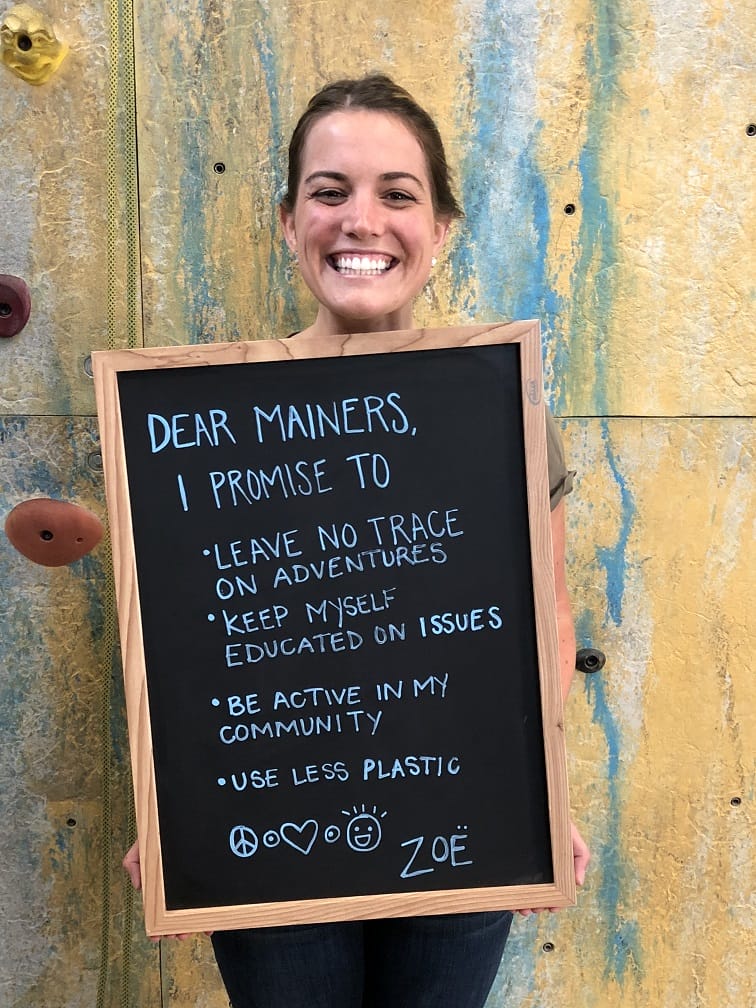 DEAR MAINERS,
I PROMISE TO
•LEAVE NO TRACE
ON ADVENTURES
•KEEP MYSELF
EDUCATED ON ISSUES
•BE ACTIVE IN MY
COMMUNITY
•USE LESS PLASTIC
ZOË